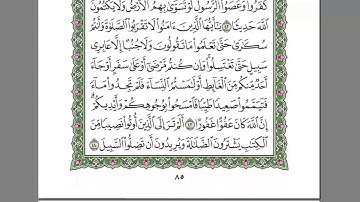 كَفَرُوا۟ وَعَصَوُا۟ ٱلرَّسُولَ لَوْ تُسَوَّىٰ بِهِمُ ٱلْأَرْضُ وَلَا يَكْتُمُونَ
ٱللَّهَ حَدِيثًا ٤٢ يَـٰٓأَيُّهَا ٱلَّذِينَ ءَامَنُوا۟ لَا تَقْرَبُوا۟ ٱلصَّلَوٰةَ وَأَنتُمْ
سُكَـٰرَىٰ حَتَّىٰ تَعْلَمُوا۟ مَا تَقُولُونَ وَلَا جُنُبًا إِلَّا عَابِرِى
سَبِيلٍ حَتَّىٰ تَغْتَسِلُوا۟ وَإِن كُنتُم مَّرْضَىٰٓ أَوْ عَلَىٰ سَفَرٍ أَوْ جَآءَ
أَحَدٌ مِّنكُم مِّنَ ٱلْغَآئِطِ أَوْ لَـٰمَسْتُمُ ٱلنِّسَآءَ فَلَمْ تَجِدُوا۟ مَآءً
فَتَيَمَّمُوا۟ صَعِيدًا طَيِّبًا فَٱمْسَحُوا۟ بِوُجُوهِكُمْ وَأَيْدِيكُمْ
إِنَّ ٱللَّهَ كَانَ عَفُوًّا غَفُورًا ٤٣ أَلَمْ تَرَ إِلَى ٱلَّذِينَ أُوتُوا۟ نَصِيبًا مِّنَ
ٱلْكِتَـٰبِ يَشْتَرُونَ ٱلضَّلَـٰلَةَ وَيُرِيدُونَ أَن تَضِلُّوا۟ ٱلسَّبِيلَ ٤٤
٨٥